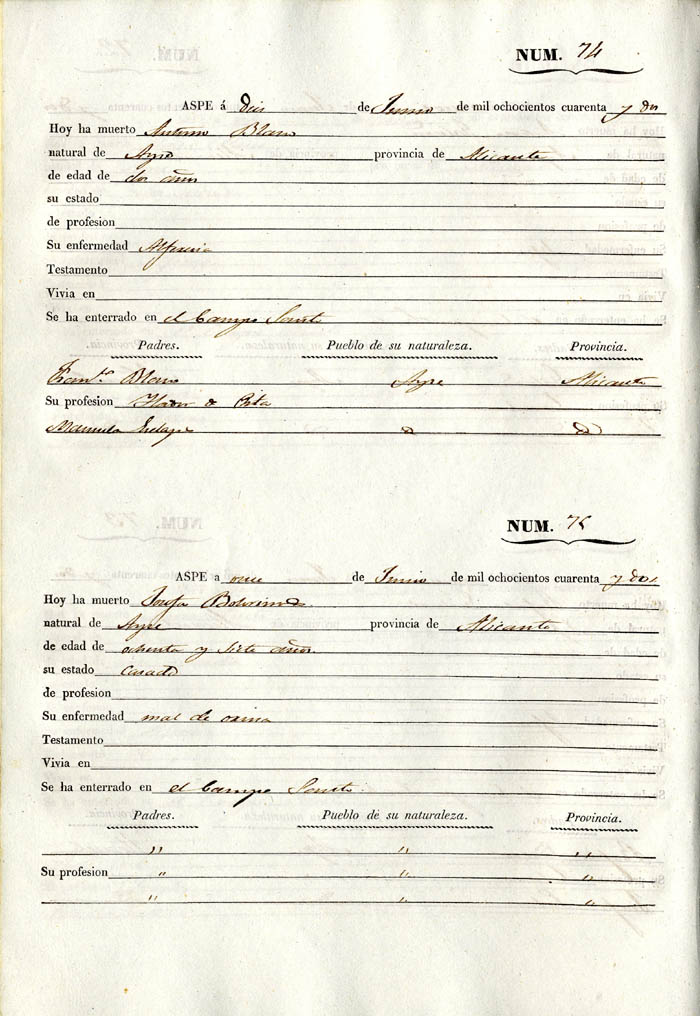 NUM. 74
ASPE á Diez de Junio de mil ochocientos cuarenta y dos
Hoy ha muerto Antonio Blanco
natural de Aspe provincia de Alicante
de edad de dos años
su estado
de profesion
Su enfermedad Alferecia
Testamento
Vivia en
Se ha enterrado en el Campo Santo
Padres. Pueblo de su naturaleza. Provincia.
Blanco Aspe Alicante
Su profesion
Manuela
NUM. 75
ASPE a once de Junio de mil ochocientos cuarenta y dos
Hoy ha muerto Josefa
natural de Aspe provincia de Alicante
de edad de ochenta y siete años
su estado casado
de profesion
Su enfermedad mal de orina
Testamento
Vivia en
Se ha enterrado en el Campo Santo
Padres. Pueblo de su naturaleza. Provincia.
" " "
Su profesion " " "
" " "